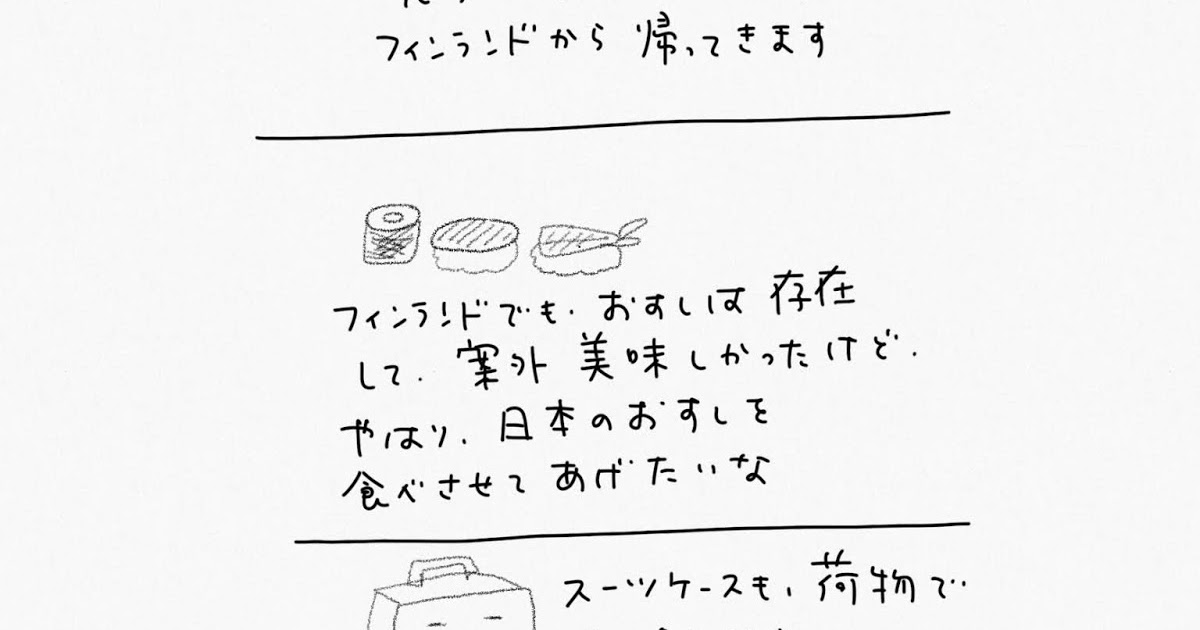 フィンランドから 帰ってきます
フィンランドでも、おすしは 存在
して、案外 美味しかったけど、
やはり、日本のおすしを
食べさせて あげたいな
スーツケースも、荷物で